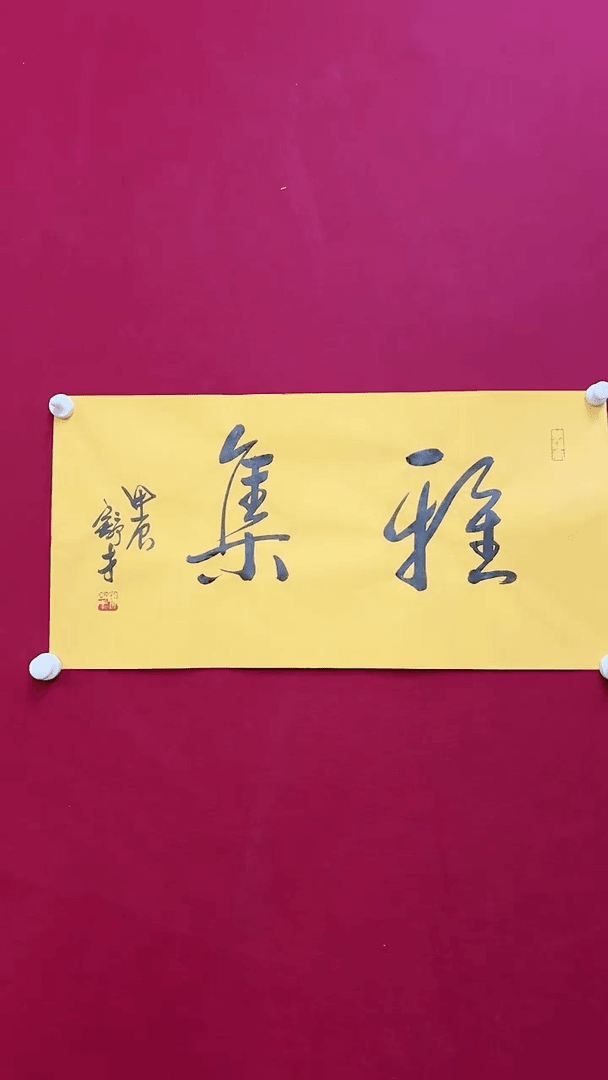 雅集
甲辰
舒才